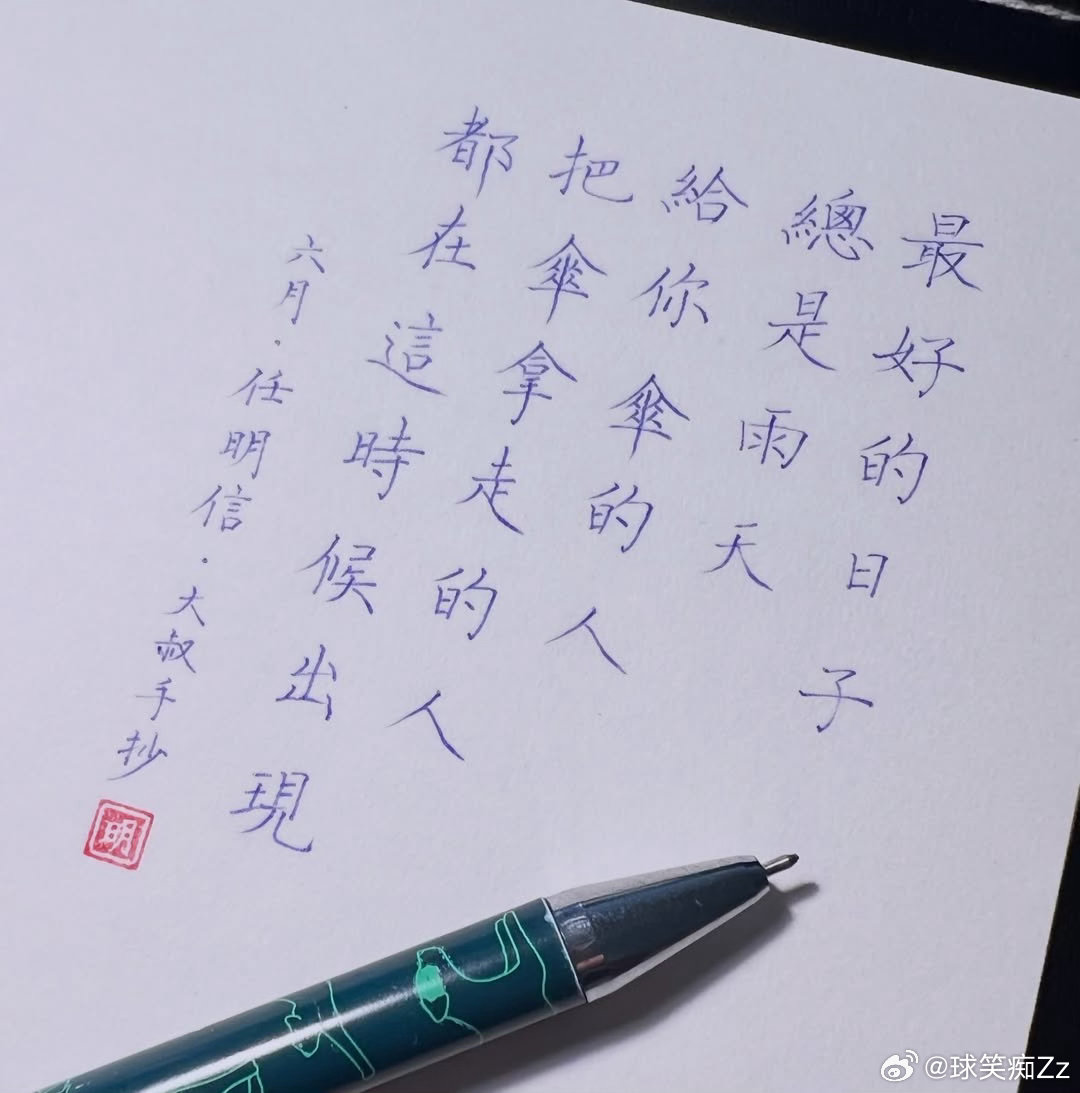 最好的日子
總是雨天
給你傘的人
把傘拿走的人
都在這時候出現
六月·任明信·大叔手抄
明
@球笑痴Zz